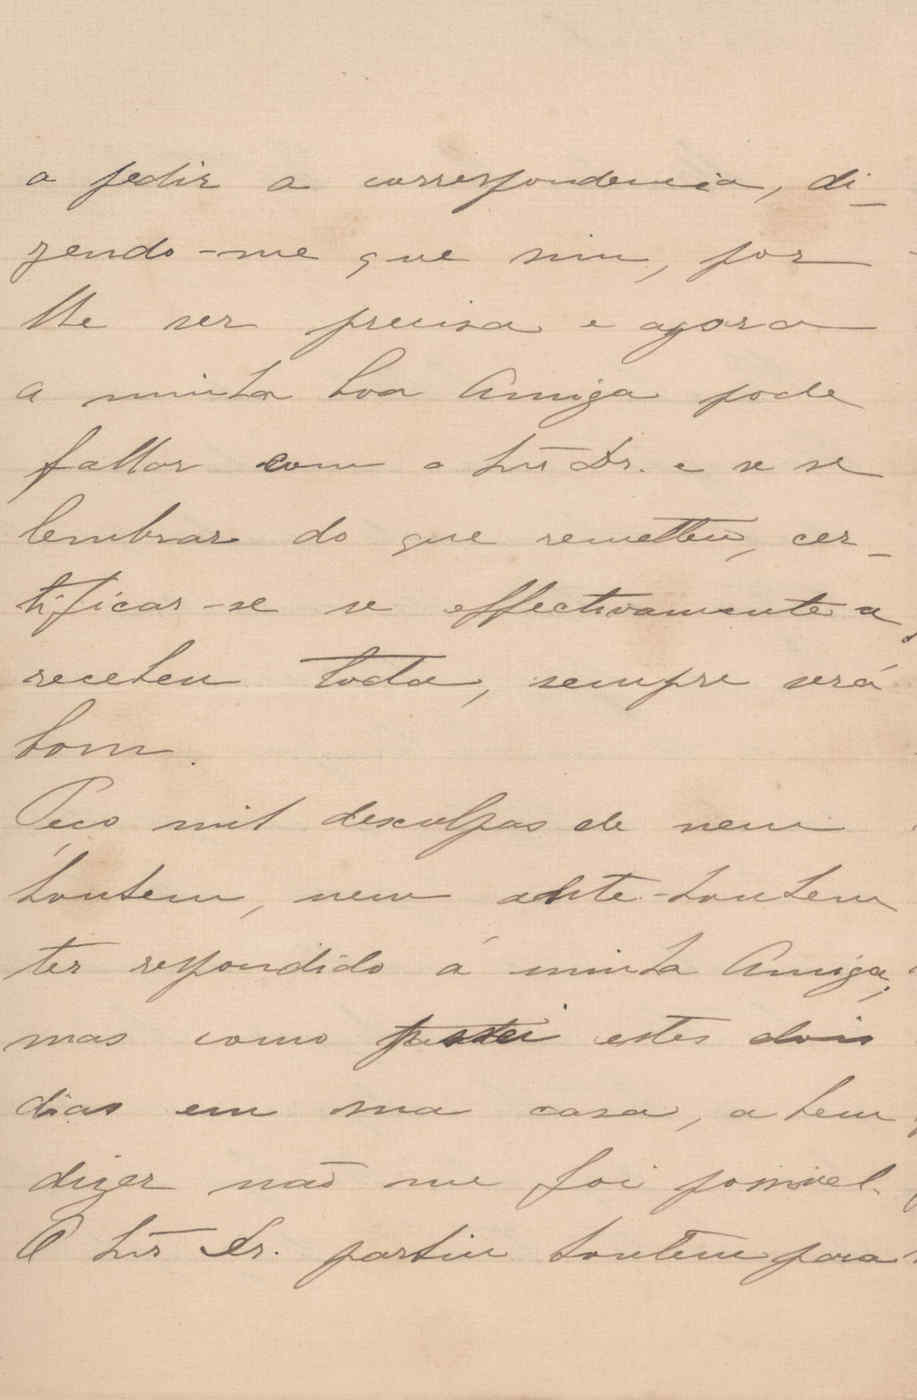 a pedir a correspondencia, di-
zendo-me que sim, por
lhe ser precisa e agora
a minha boa Amiga pode
fallar com o Snr Dr. e se se
lembrar do que remetteu, cer-
tificar-se se effectivamente a
recebeu toda, sempre será
bom.
Peço mil desculpas de nem
hontem, nem ante-hontem
ter respondido á minha Amiga,
mas como passei estes dois
dias em sua casa, a bem
dizer não me foi possivel.
O Snr Dr. partiu hontem para